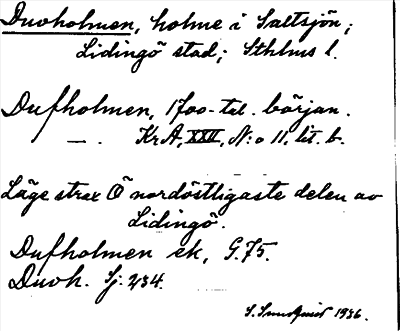 Duvholmen, holme i Saltsjön;
Lidingö stad; Sthlms l.
Dufholmen, 1700-tal. början.
— . KrA, XXII, N:o 11, lit. b.
Läge strax Ö nordöstligaste delen av
Lidingö.
Dufholmen ek, G. 75.
Duvh. Sj. 234.
S. Sundquist 1936.